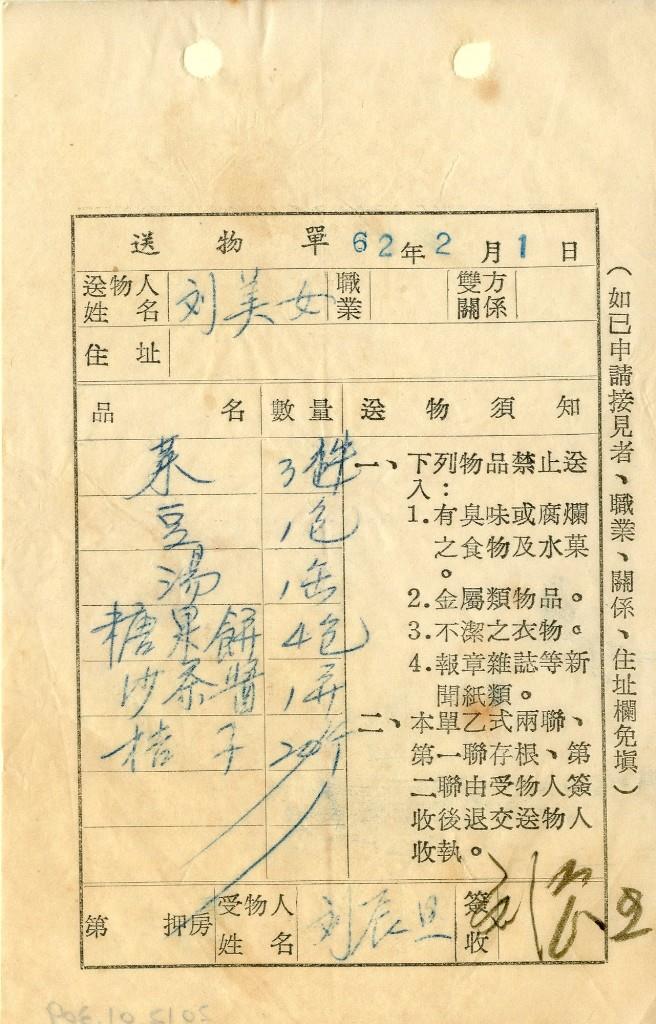 送物單 62年2月1日
送物人姓名 刘美女 職業 雙方關係
住址
品名 數量 送物須知
菜 3件
豆 1包
湯 1缶
糖果餅 4包
沙茶醬 1
桔子 20斤
一、下列物品禁止送入：
1.有臭味或腐爛之食物及水菓。
2.金屬類物品。
3.不潔之衣物。
4.報章雜誌等新聞紙類。
二、本單乙式兩聯、第一聯存根、第二聯由受物人簽收後退交送物人收執。
第 押房 受物人姓名 刘辰旦 簽收 刘辰旦
（如已申請接見者、職業、關係、住址欄免塡）